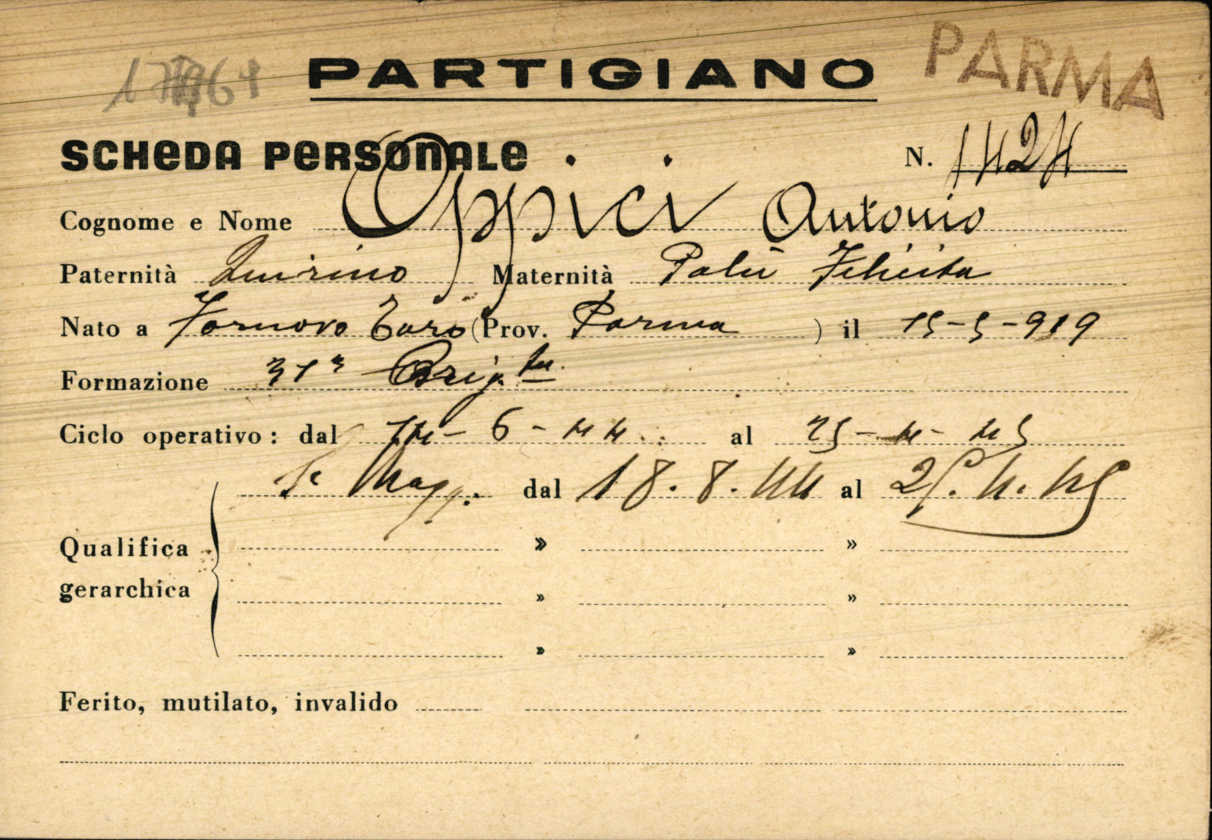 PARTIGIANO
PARMA
SCHEDA PERSONALE N. 1424
Cognome e Nome Oppici Antonio
Paternità Quirino Maternità Palù Felicita
Nato a Fornovo Taro (Prov. Parma ) il 15-5-919
Formazione 31ª Brig.ta
Ciclo operativo: dal -6-44 al 25-4-45
dal 18.8.44 al 25.4.45
Qualifica » »
gerarchica » »
» »
Ferito, mutilato, invalido